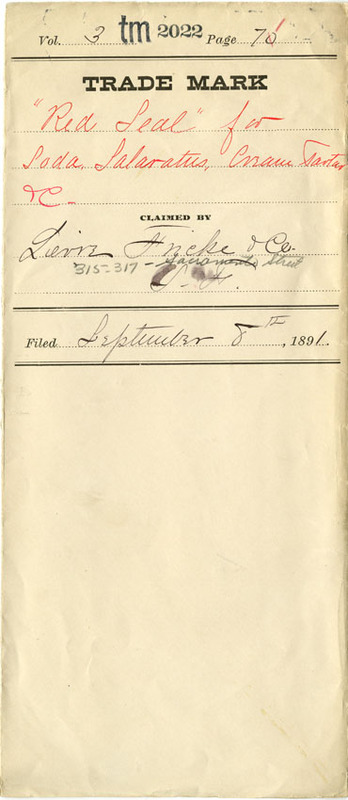 Vol. 3 tm 2022 Page 70
TRADE MARK
"Red Seal" for
Soda, Salaratus, Cream Tartar
&C-
CLAIMED BY
Fricke & Co.
315-317- Sacramento Street
S. F.
Filed September 8th, 1891.